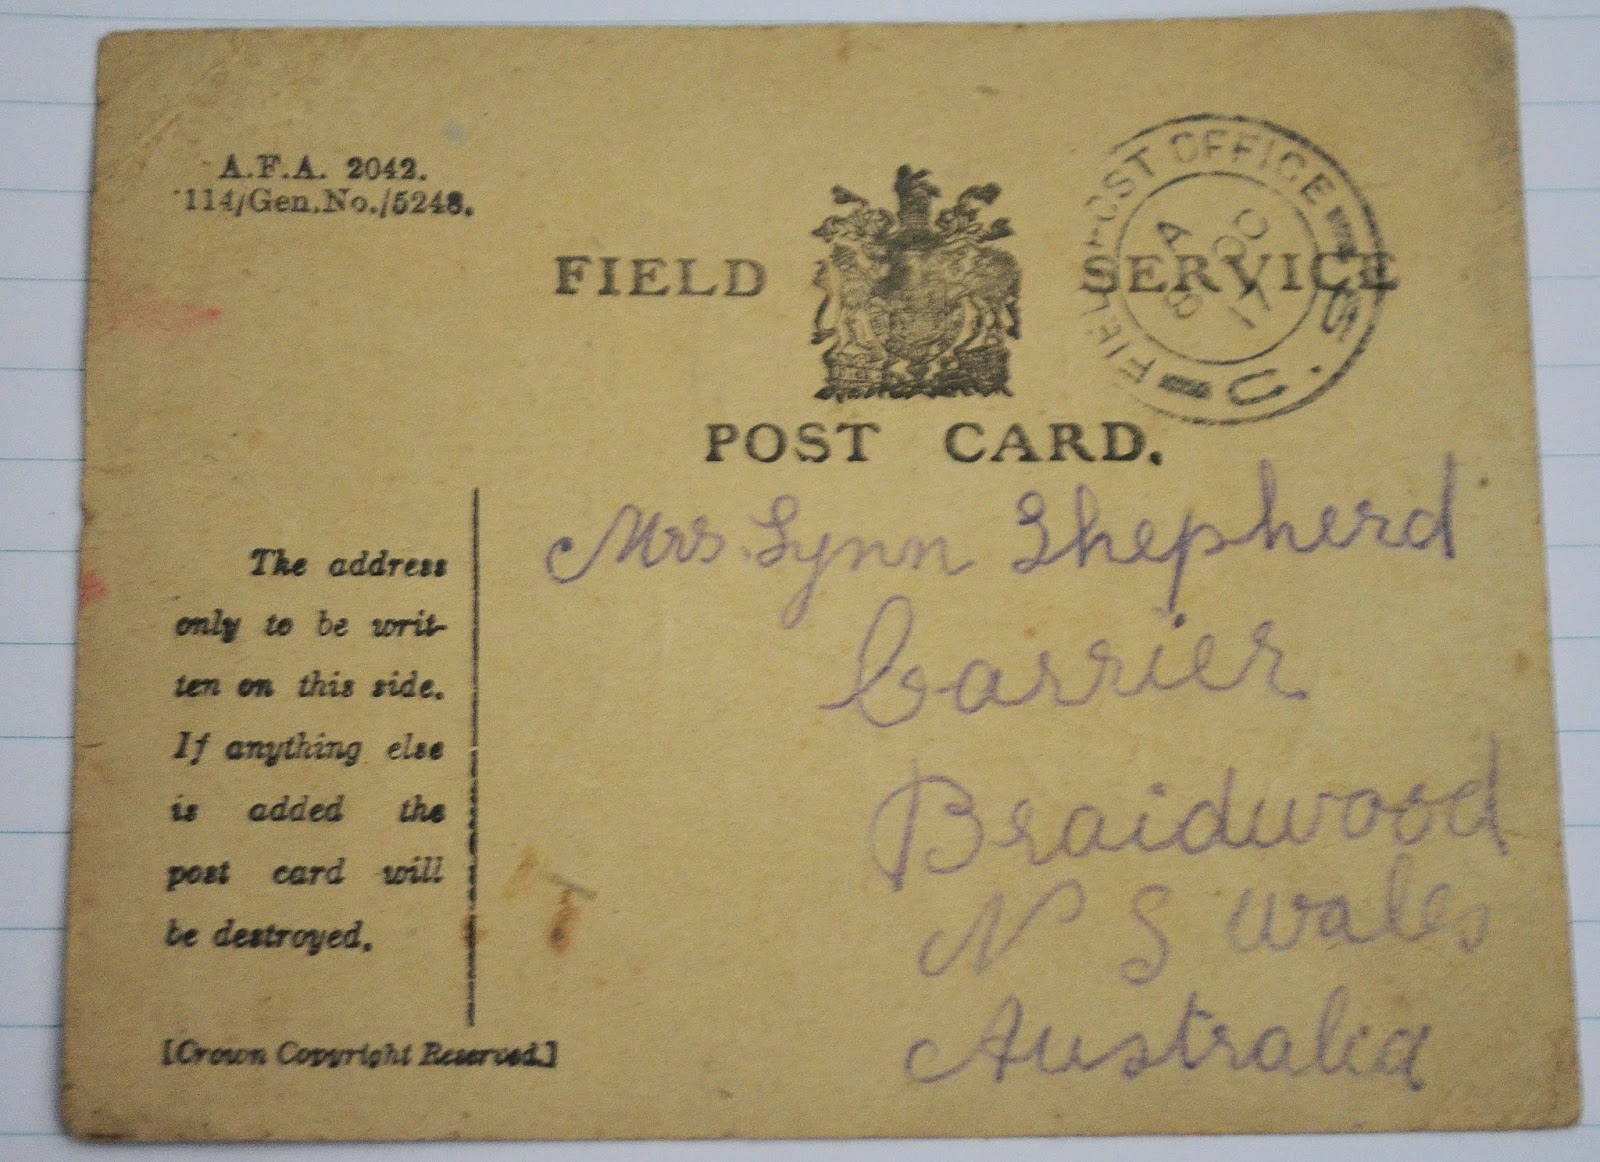 A.F.A. 2042.
114/Gen.No./5248.
FIELD SERVICE
POST CARD.
FIELD POST OFFICE
U.S.
8 A
17
The address
only to be writ-
ten on this side.
If anything else
is added the
post card will
be destroyed.
[Crown Copyright Reserved.]
Mrs. Lynn Shepherd
Carrier
Braidwood
N S Wales
Australia